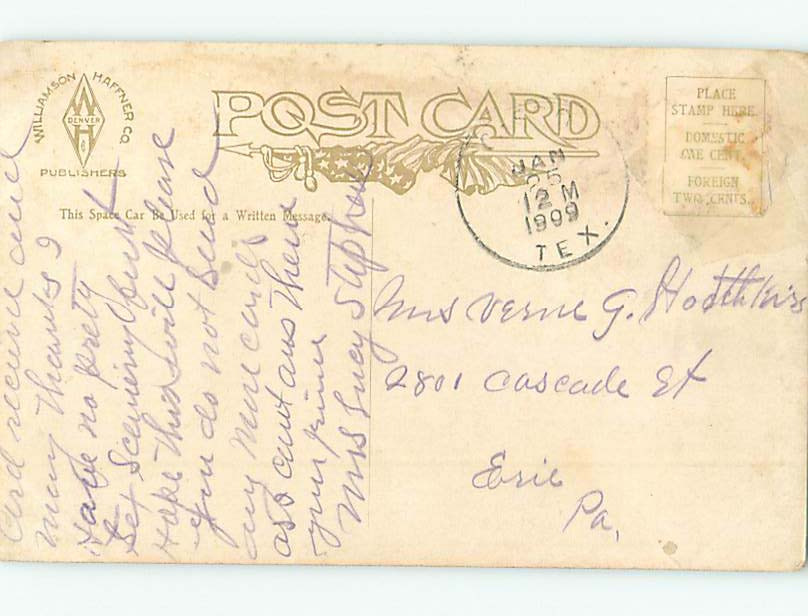 WILLIAMSON HAFFNER CO.
W
DENVER
H
PUBLISHERS
POST CARD
This Space Can Be Used for a Written Message.
PLACE
STAMP HERE
DOMESTIC
ONE CENT
FOREIGN
TWO CENTS.
JAN
25
12 M
1909
TEX.
Card receive and
many thanks I
Have no prety
Scenery but
Hope this will please
you do not send
any more cards
as I cant ans them
your
Mrs Lucy Stephens
Mrs Verne G. Hotchkiss
2801 Cascade St
Erie
Pa,